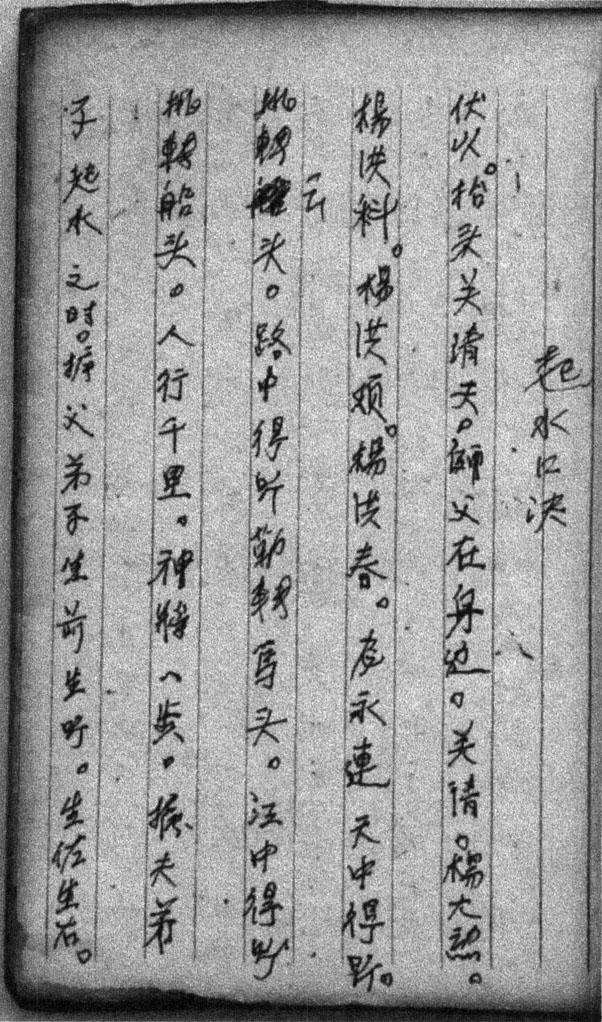 起水口决
伏以。抬头关请夫。師父在身边。关请。楊大
楊洪科。楊洪烦。楊洪春。 永連天中得听。
挑轉云头。路中得听勒轉馬头。江中得听
挑轉船头。人行千里。神將一步。 夫弟
子起水之时。 父弟子生前生听。生佐生右。